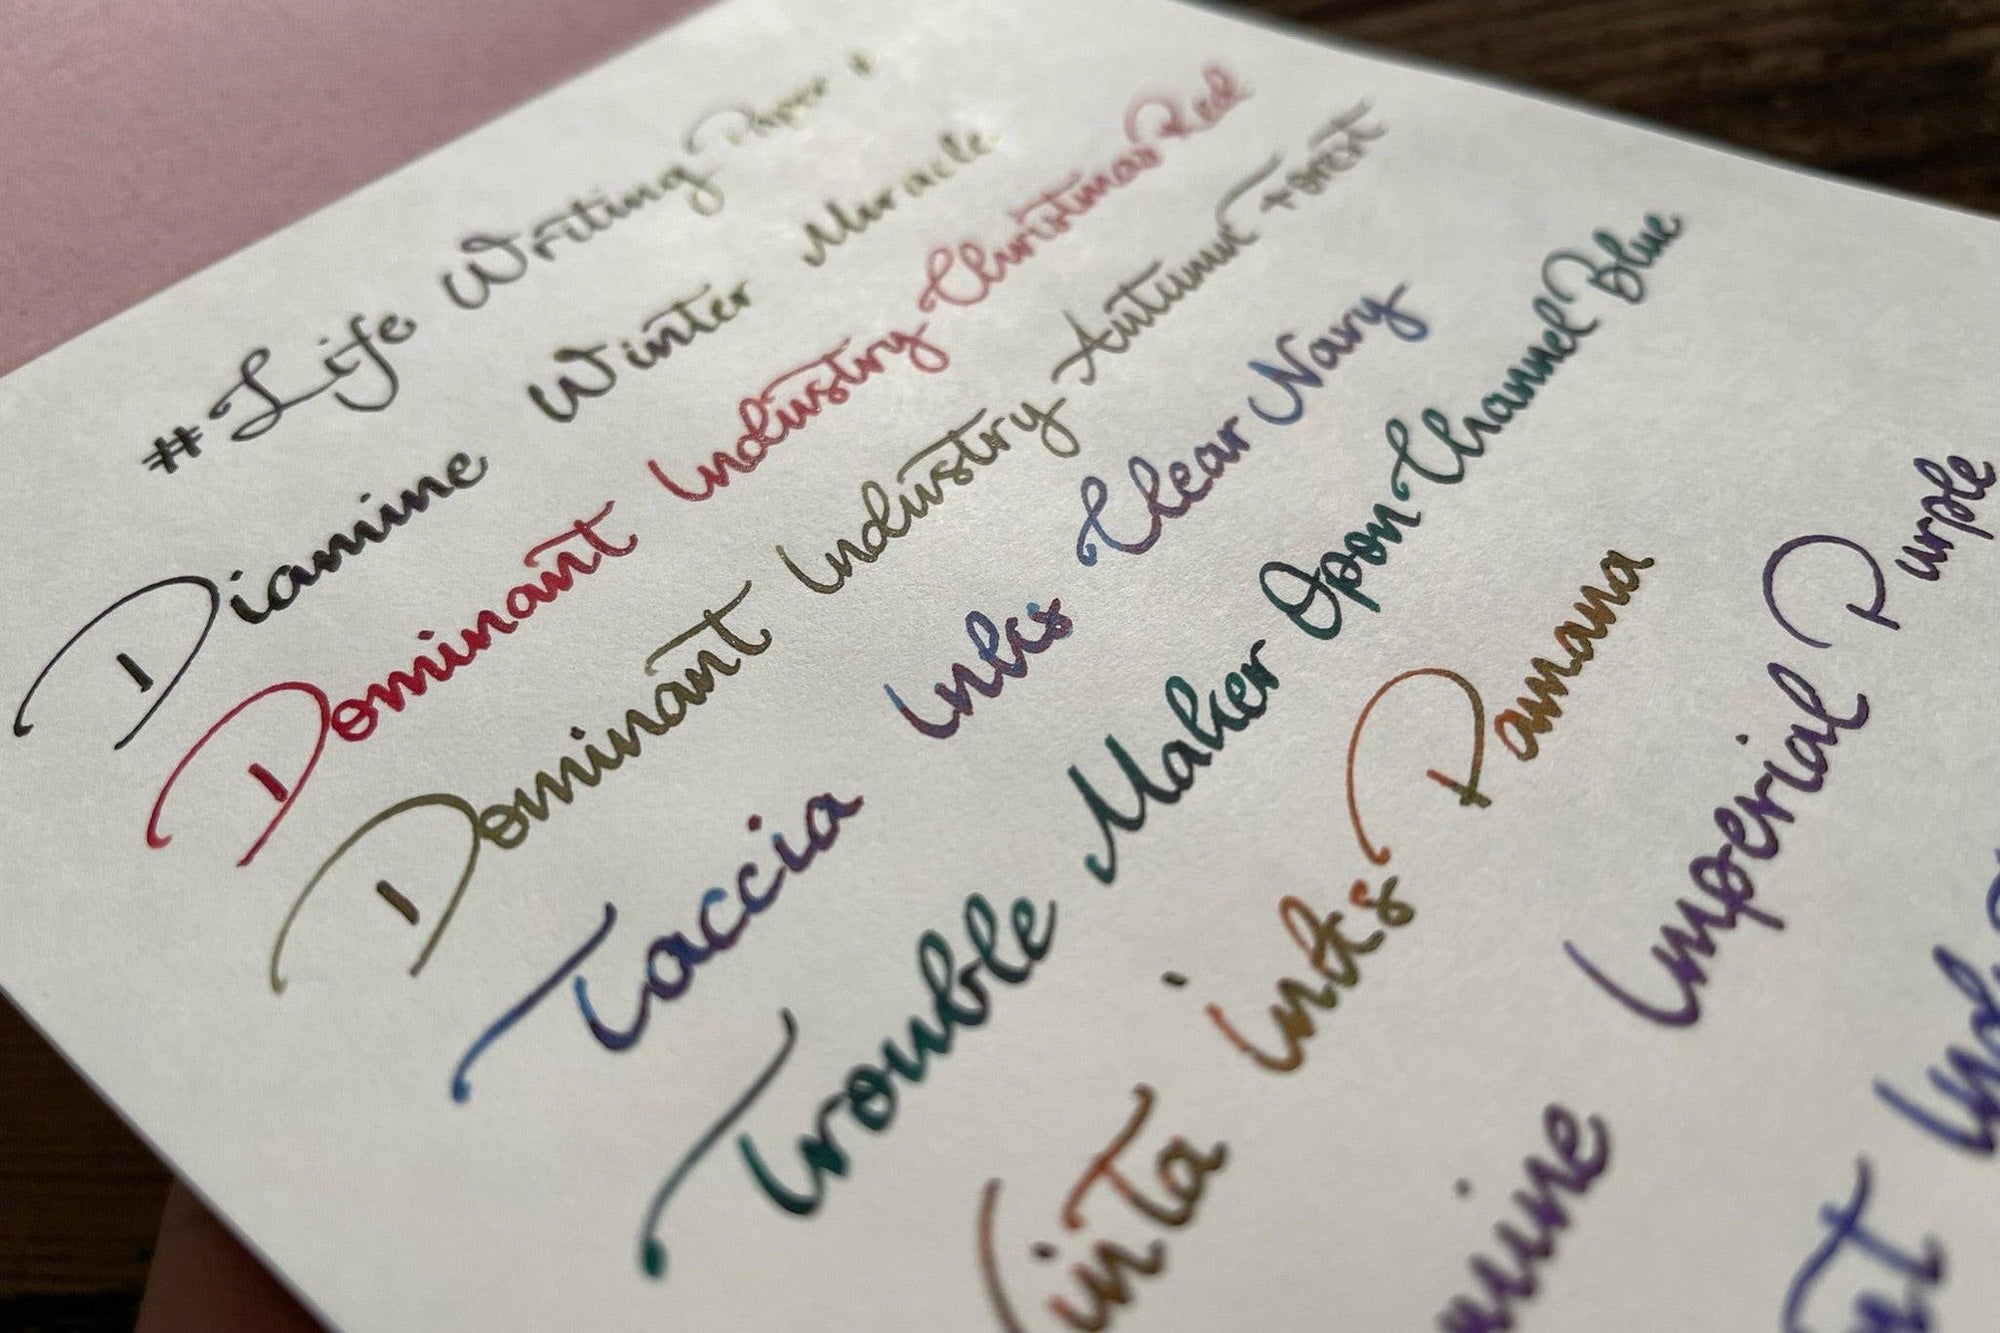 #Life Writing Paper #
Diamine Winter Miracle
Dominant Industry Christmas Red
Dominant Industry Autumn Forest
Taccia Inks Clear Navy
Trouble Maker Opon Channel Blue
Vinta inks Pamana
Imperial Purple